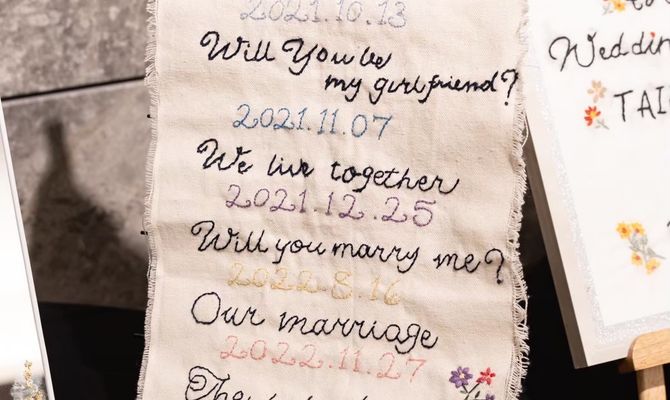 2021.10.13
Will You be
my girlfriend?
2021.11.07
We live together
2021.12.25
Will you marry me?
2022.8.16
Our marriage
2022.11.27